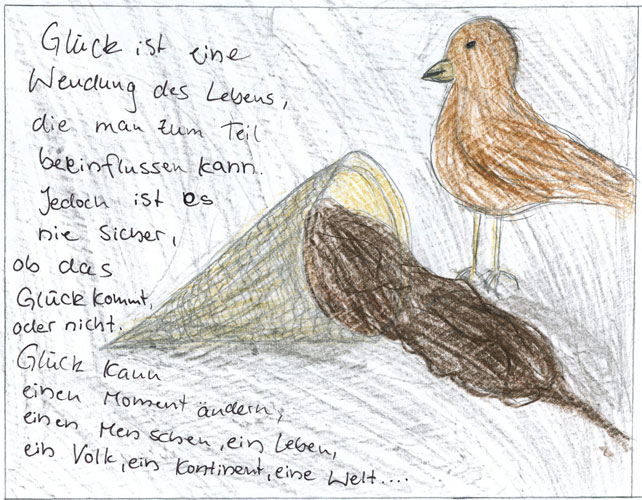 Glück ist eine
Wendung des Lebens,
die man zum Teil
beeinflussen kann.
Jedoch ist es
nie sicher,
ob das
Glück kommt,
oder nicht.
Glück kann
einen Moment ändern,
einen Menschen, ein Leben,
ein Volk, ein Kontinent, eine Welt....